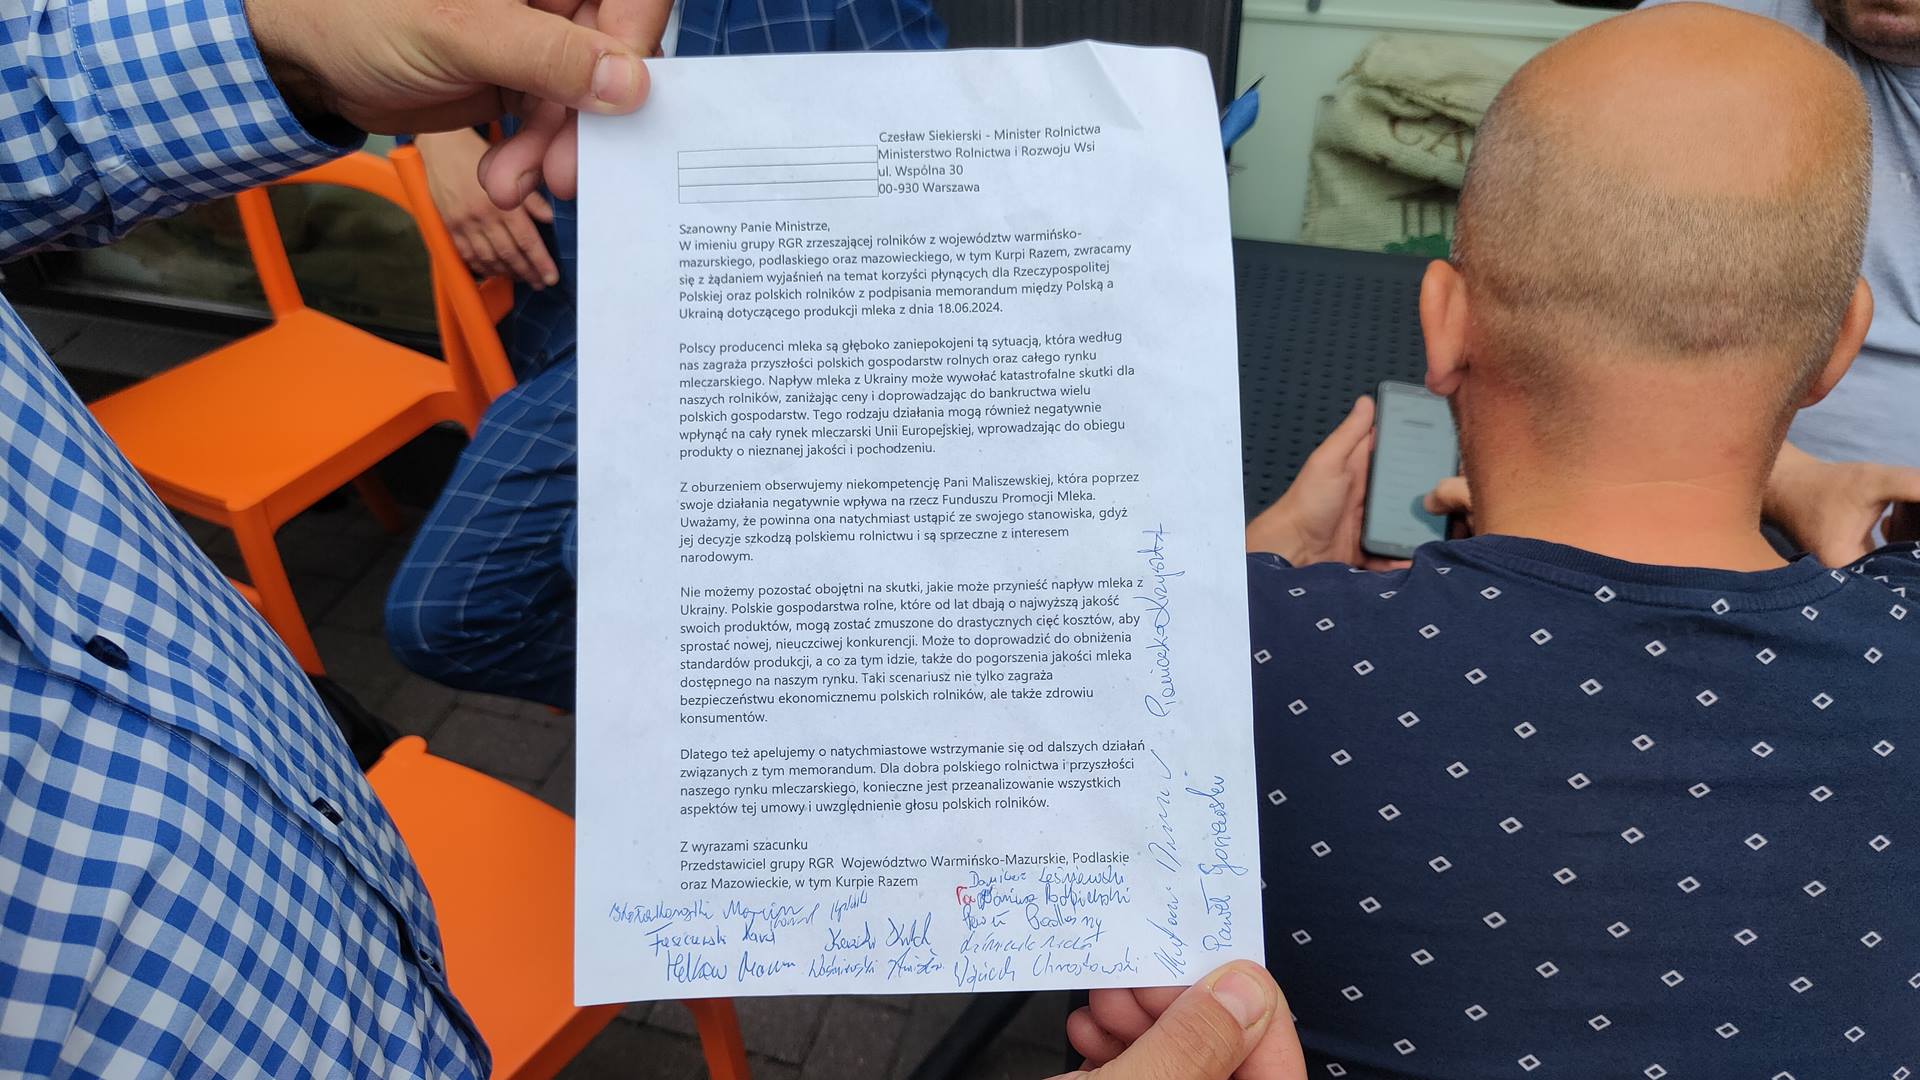 Czesław Siekierski - Minister Rolnictwa
Ministerstwo Rolnictwa i Rozwoju Wsi
ul. Wspólna 30
00-930 Warszawa
Szanowny Panie Ministrze,
W imieniu grupy RGR zrzeszającej rolników z województw warmińsko-
mazurskiego, podlaskiego oraz mazowieckiego, w tym Kurpi Razem, zwracamy
się z żądaniem wyjaśnień na temat korzyści płynących dla Rzeczypospolitej
Polskiej oraz polskich rolników z podpisania memorandum między Polską a
Ukrainą dotyczącego produkcji mleka z dnia 18.06.2024.
Polscy producenci mleka są głęboko zaniepokojeni tą sytuacją, która według
nas zagraża przyszłości polskich gospodarstw rolnych oraz całego rynku
mleczarskiego. Napływ mleka z Ukrainy może wywołać katastrofalne skutki dla
naszych rolników, zaniżając ceny i doprowadzając do bankructwa wielu
polskich gospodarstw. Tego rodzaju działania mogą również negatywnie
wpłynąć na cały rynek mleczarski Unii Europejskiej, wprowadzając do obiegu
produkty o nieznanej jakości i pochodzeniu.
Z oburzeniem obserwujemy niekompetencję Pani Maliszewskiej, która poprzez
swoje działania negatywnie wpływa na rzecz Funduszu Promocji Mleka.
Uważamy, że powinna ona natychmiast ustąpić ze swojego stanowiska, gdyż
jej decyzje szkodzą polskiemu rolnictwu i są sprzeczne z interesem
narodowym.
Nie możemy pozostać obojętni na skutki, jakie może przynieść napływ mleka z
Ukrainy. Polskie gospodarstwa rolne, które od lat dbają o najwyższą jakość
swoich produktów, mogą zostać zmuszone do drastycznych cięć kosztów, aby
sprostać nowej, nieuczciwej konkurencji. Może to doprowadzić do obniżenia
standardów produkcji, a co za tym idzie, także do pogorszenia jakości mleka
dostępnego na naszym rynku. Taki scenariusz nie tylko zagraża
bezpieczeństwu ekonomicznemu polskich rolników, ale także zdrowiu
konsumentów.
Dlatego też apelujemy o natychmiastowe wstrzymanie się od dalszych działań
związanych z tym memorandum. Dla dobra polskiego rolnictwa i przyszłości
naszego rynku mleczarskiego, konieczne jest przeanalizowanie wszystkich
aspektów tej umowy i uwzględnienie głosu polskich rolników.
Z wyrazami szacunku
Przedstawiciel grupy RGR Województwo Warmińsko-Mazurskie, Podlaskie
oraz Mazowieckie, w tym Kurpie Razem
Leśniewski
Podbielski
Paweł Podlasny
Wojciech Chrostowski
Krzysztof
Paweł